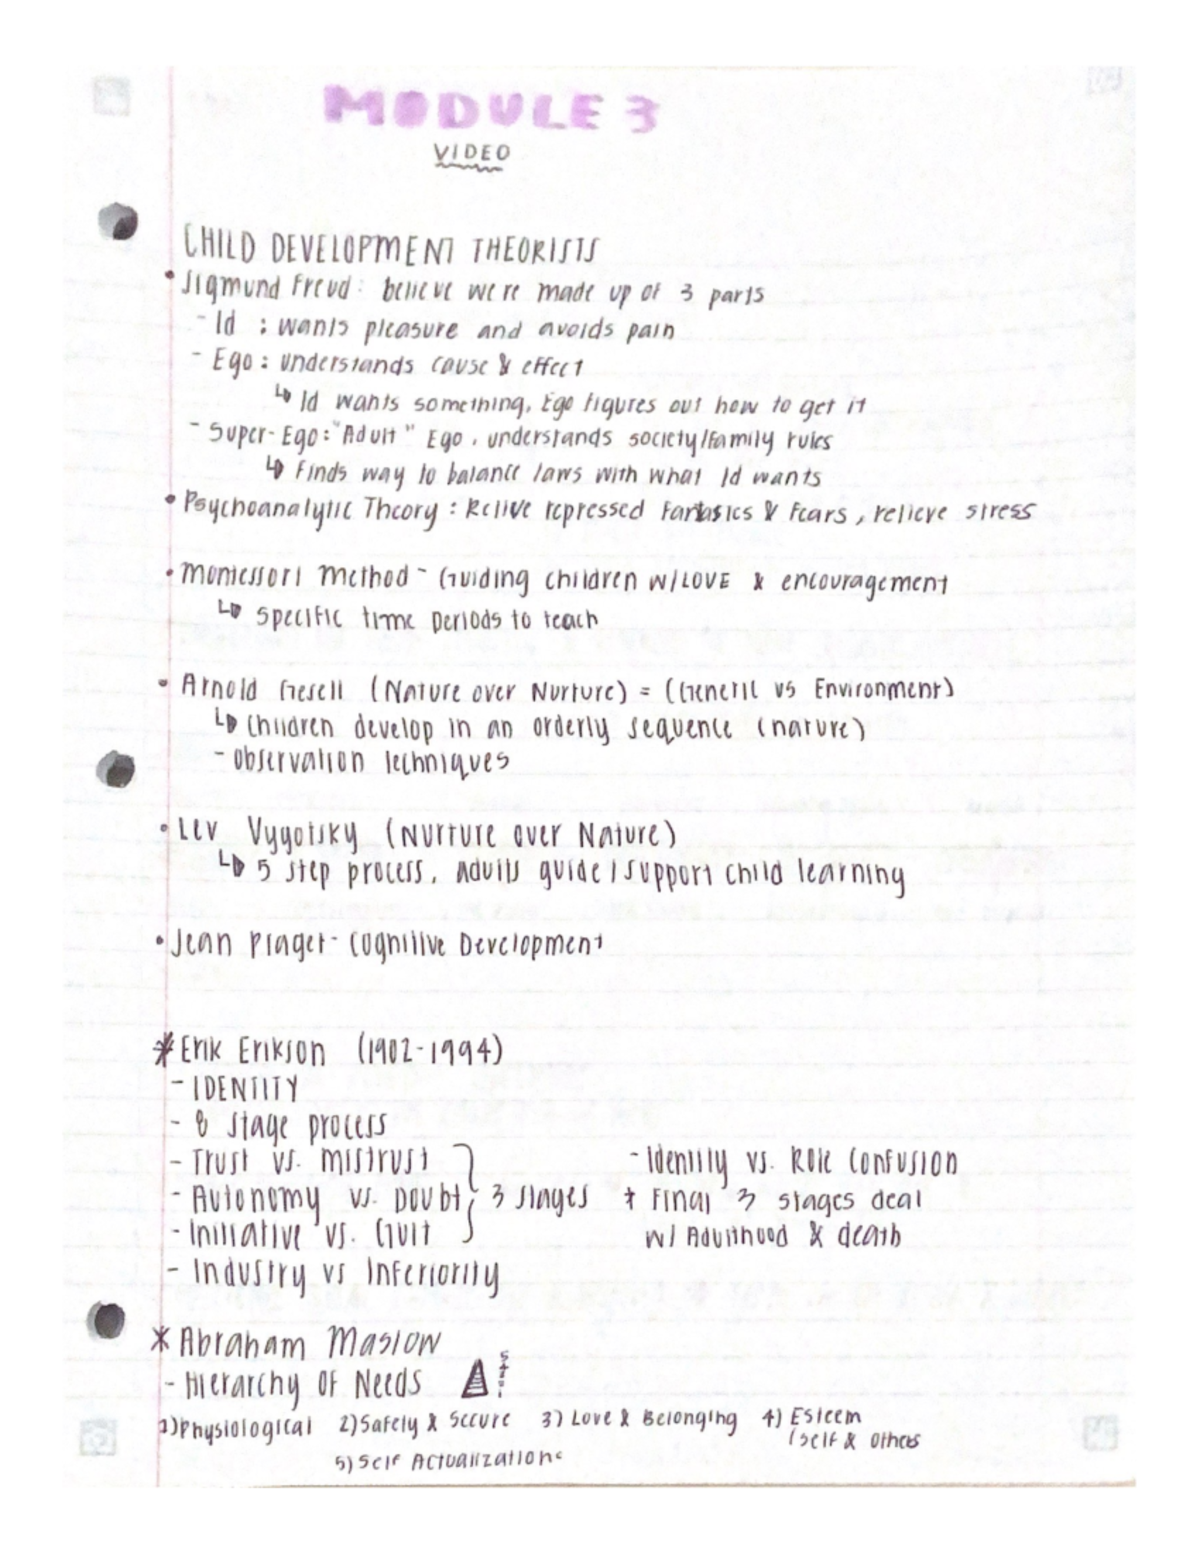 MODULE 3
VIDEO
CHILD DEVELOPMENT THEORISTS
• Sigmund Freud: believe we're made up of 3 parts
- Id : wants pleasure and avoids pain
- Ego: understands cause & effect
↳ Id wants something, Ego figures out how to get it
- Super-Ego: "Adult" Ego, understands society/family rules
↳ Finds way to balance laws with what Id wants
• Psychoanalytic Theory : Relive repressed Fantasies & Fears, relieve stress
• Montessori Method - Guiding children w/LOVE & encouragement
↳ Specific time periods to teach
• Arnold Gesell (Nature over Nurture) = (Genetic vs Environment)
↳ Children develop in an orderly sequence (nature)
- Observation Techniques
• Lev Vygotsky (Nurture over Nature)
↳ 5 step process, adults guide/support child learning
• Jean Piaget - Cognitive Development
* Erik Erikson (1902-1994)
- IDENTITY
- 8 stage process
- Trust vs. Mistrust
- Autonomy vs. Doubt } 3 stages
- Initiative vs. Guilt
- Industry vs Inferiority
- Identity vs. Role Confusion
* Final 3 stages deal
w/ Adulthood & death
* Abraham Maslow
- Hierarchy of Needs 5 4 3 2 1
1) Physiological 2) Safety & Secure 3) Love & Belonging 4) Esteem
(self & others
5) Self Actualization